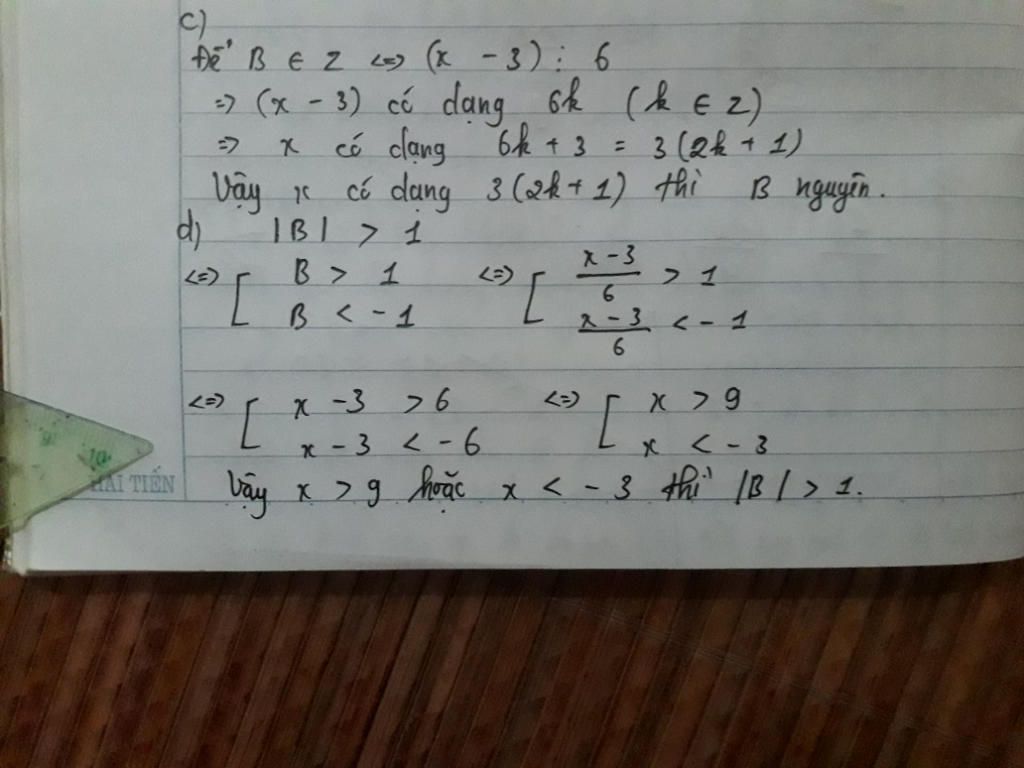 c)
Để B ∈ Z <=> (x - 3) ⋮ 6
=> (x - 3) có dạng 6k (k ∈ Z)
=> x có dạng 6k + 3 = 3(2k + 1)
Vậy x có dạng 3(2k + 1) thì B nguyên.
d) |B| > 1
<=> [ B > 1 <=> [ x-3/6 > 1
B < -1 x-3/6 < -1
<=> [ x - 3 > 6 <=> [ x > 9
x - 3 < -6 x < -3
HẢI TIẾN
Vậy x > 9 hoặc x < -3 thì |B| > 1.